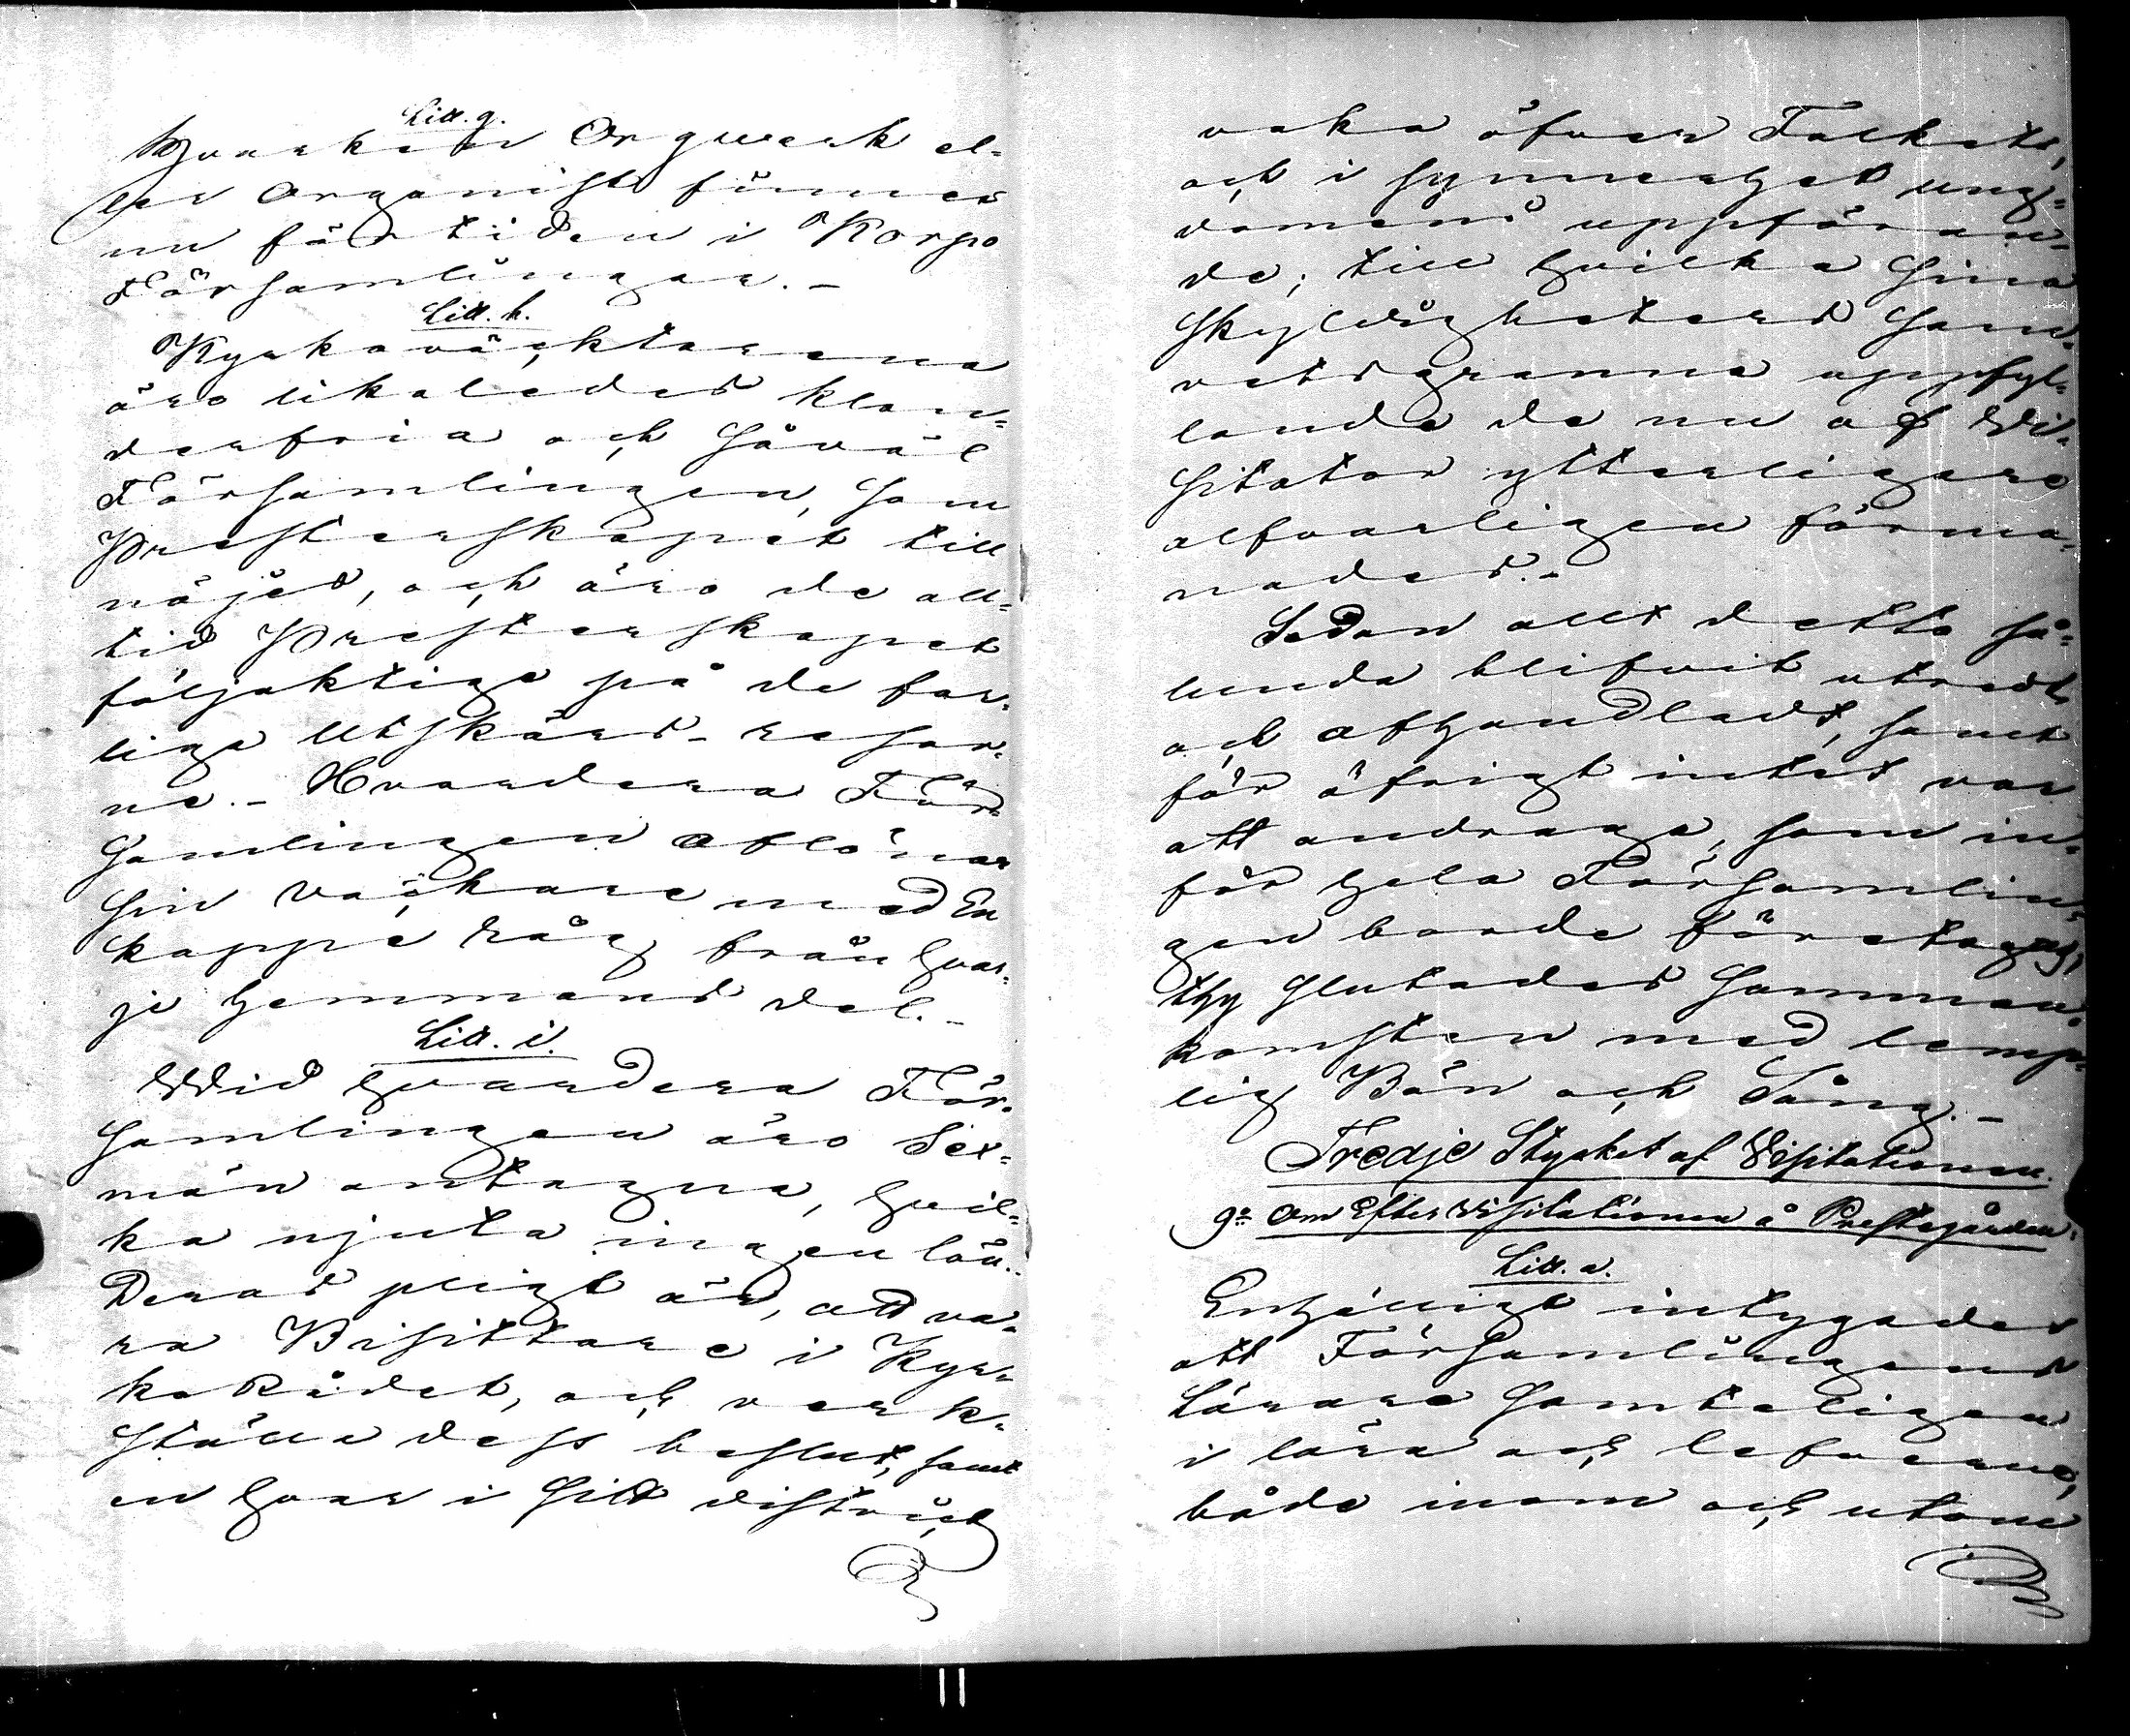 Litt. g.
Hvarken Orgwerk el-
ler Organist finnes
nu för tiden i Korpo
Församlingar. –
Litt. h.
Kyrkováktarena
äro likaledes klan-
derfria och såväl
Församlingen, som
Presterskapet till
nöjes, och äro de all-
tid Presterskapet
följaktige på de far-
liga Utskärs-resor-
ne. – Hvardera För-
samlingen aflönar
sin väckare med En
kappe råg från hvar-
je hemmans del. –
Litt. i.
Wid hvardera För-
samlingen äro Sex-
män antagne, hvil-
ka njuta ingen lön.
Deras pligt är, att va-
ra Bisittare i Kyr-
ko Rådet, och verk-
ställa dess beslut, samt
en hvar i sitt district
vaka öfver Folkets,
och i synnerhet ung-
domens uppföran-
de; till hvilka sina
skyldigheters sam-
vetsgranna uppfyl-
lande de nu af Wi-
sitator ytterligare
alfvarligen förma-
nades. –
Sedan allt detta så-
lunda blifvit utredt
och afhandladt, samt
för öfrigt intet var
att andraga, som in-
för hela Församlin-
gen borde företagas,
thy slutades samman-
komsten med lämp-
lig Bön och Sång. –
Tredje Stycket af Visitationen.
9º Om Efter Visitationen å Prestegården.
Litt. a.
Enhälligt intygades
att Församlingens
Lärare samteligen
i lära och lefverne,
både inom och utom